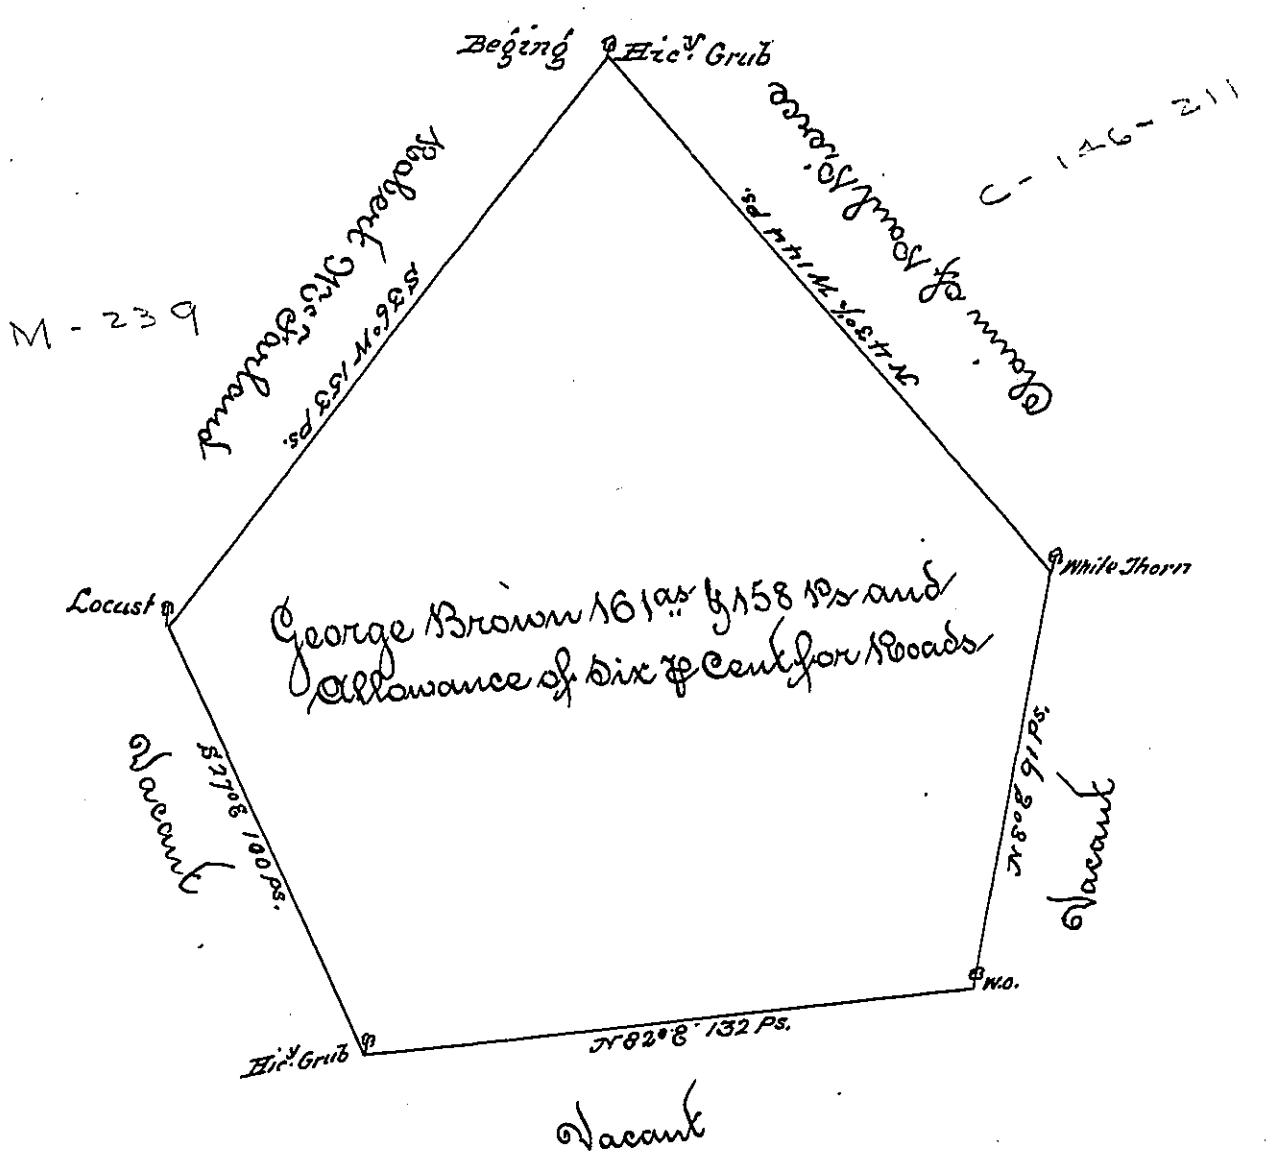 Beging Hic.y Grub
C-146-211
Robert McFarland
Claim of Paul Pierce
M-239
S 36° W 153 Ps.
N 43°½ W 144 Ps.
Locust
White Thorn
George Brown 161as & 158 Ps and
Allowance of Six ⅌ Cent for Roads
Vacant
S 27° E 100 Ps.
N 8° E 91 Ps.
Vacant
W.O.
Hic.y Grub
N 82° E 132 Ps.
Vacant